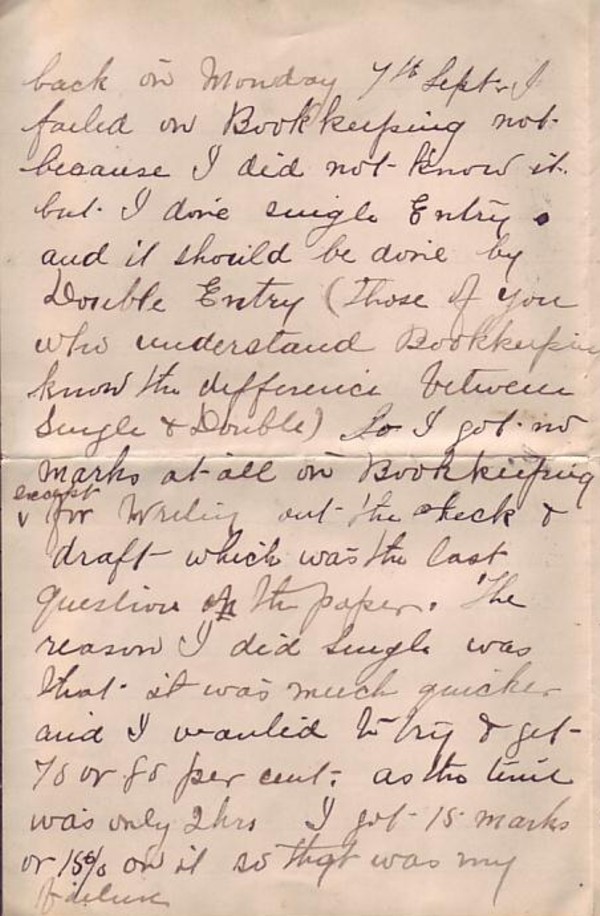 back on Monday 7th Sept. I
failed on Bookkeeping not
because I did not know it
but I done single Entry
and it should be done by
Double Entry (those of you
who understand Bookkeeping
know the difference between
Single & Double) So I got no
marks at all on Bookkeeping
except
v for Writing out the check &
draft which was the last
question on the paper. The
reason I did Single was
that it was much quicker
and I wanted to try & get
75 or 80 per cent. as the time
was only 2hrs I got 15 marks
or 15% on it so that was my
failure